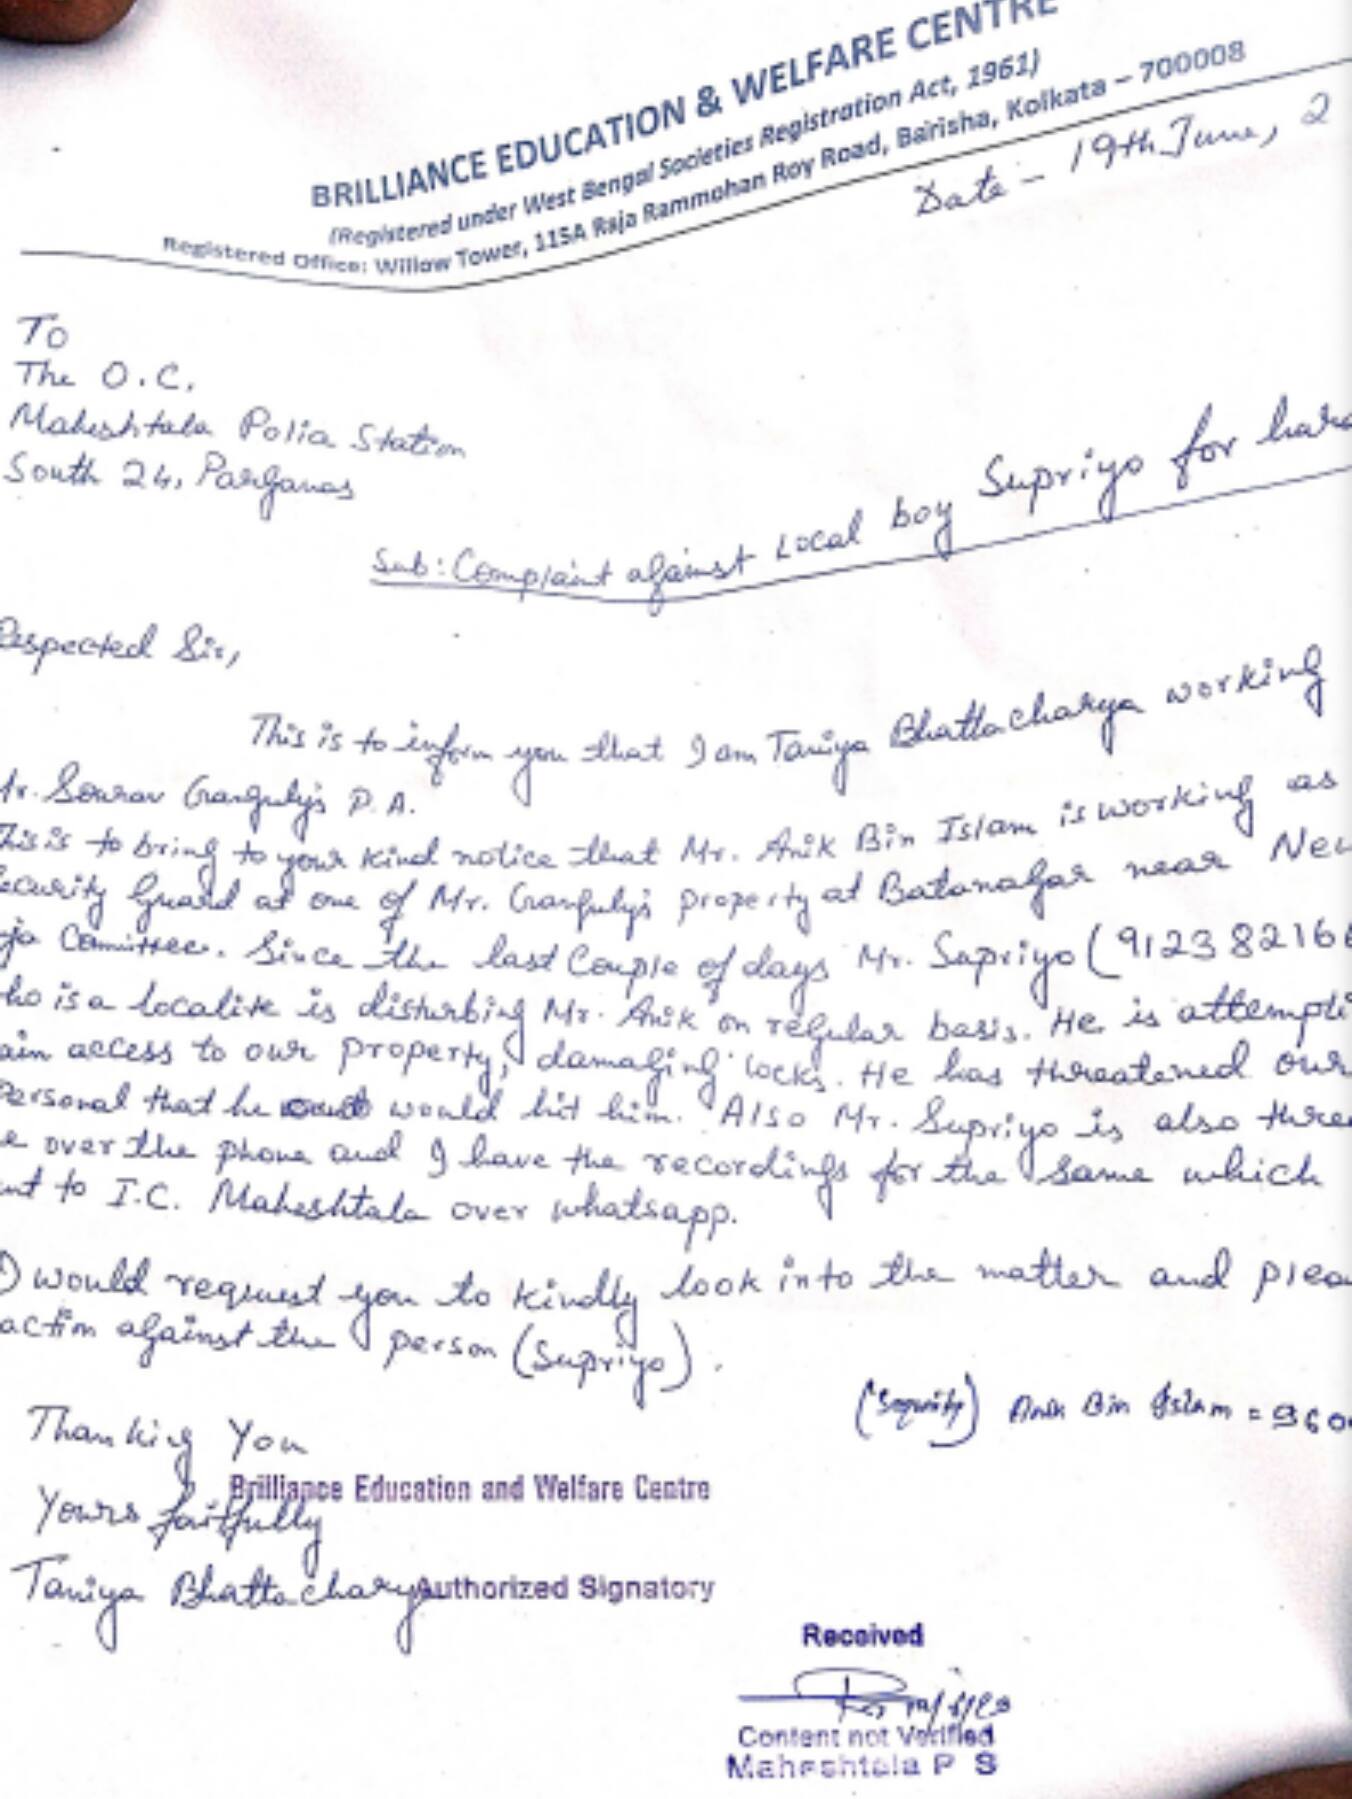 BRILLIANCE EDUCATION & WELFARE CENTRE
(Registered under West Bengal Societies Registration Act, 1961)
Registered Office: Willow Tower, 115A Raja Rammohan Roy Road, Barisha, Kolkata – 700008
Date – 19th June, 2
To
The O.C.
Maheshtala Police Station
South 24, Parganas
Sub: Complaint against Local boy Supriyo for hara
Respected Sir,
This is to inform you that I am Taniya Bhattacharya working
Mr. Sourav Ganguly's P.A.
This is to bring to your kind notice that Mr. Anik Bin Islam is working as
Security Guard at one of Mr. Ganguly's property at Batanagar near New
ja Committee. Since the last Couple of days Mr. Supriyo (91238216
ho is a localite is disturbing Mr. Anik on regular basis. He is attempti
ain access to our property, damaging locks. He has threatened our
Personal that he would hit him. Also Mr. Supriyo is also threa
e over the phone and I have the recordings for the same which
nt to I.C. Maheshtala over whatsapp.
I would request you to kindly look into the matter and plea
action against the person (Supriyo).
Anik Bin Islam = 960
Thanking You
Brilliance Education and Welfare Centre
Yours faitfully
Taniya Bhattacharya Authorized Signatory
Received
Content not Verified
Maheshtala P S